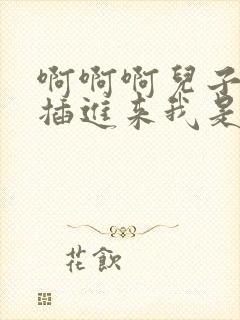 啊啊啊兒子
插進來我是
花飲